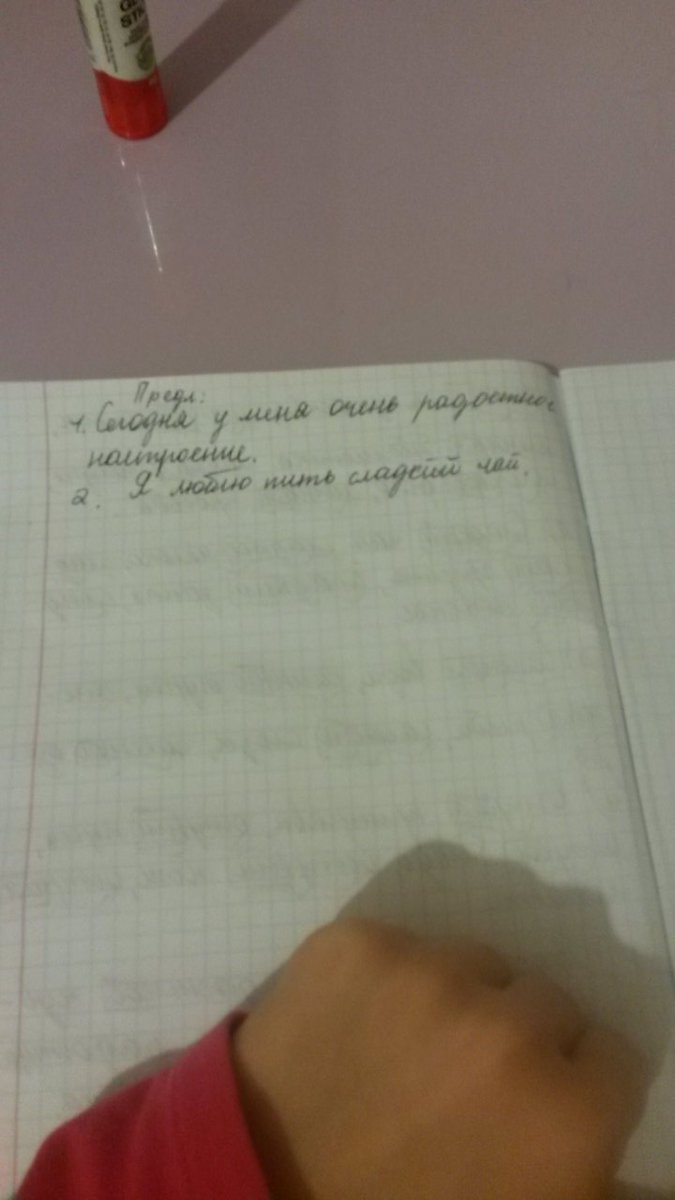 GLUE
STICK
Предл:
1. Сегодня у меня очень радостное
настроение.
2. Я люблю пить сладкий чай.